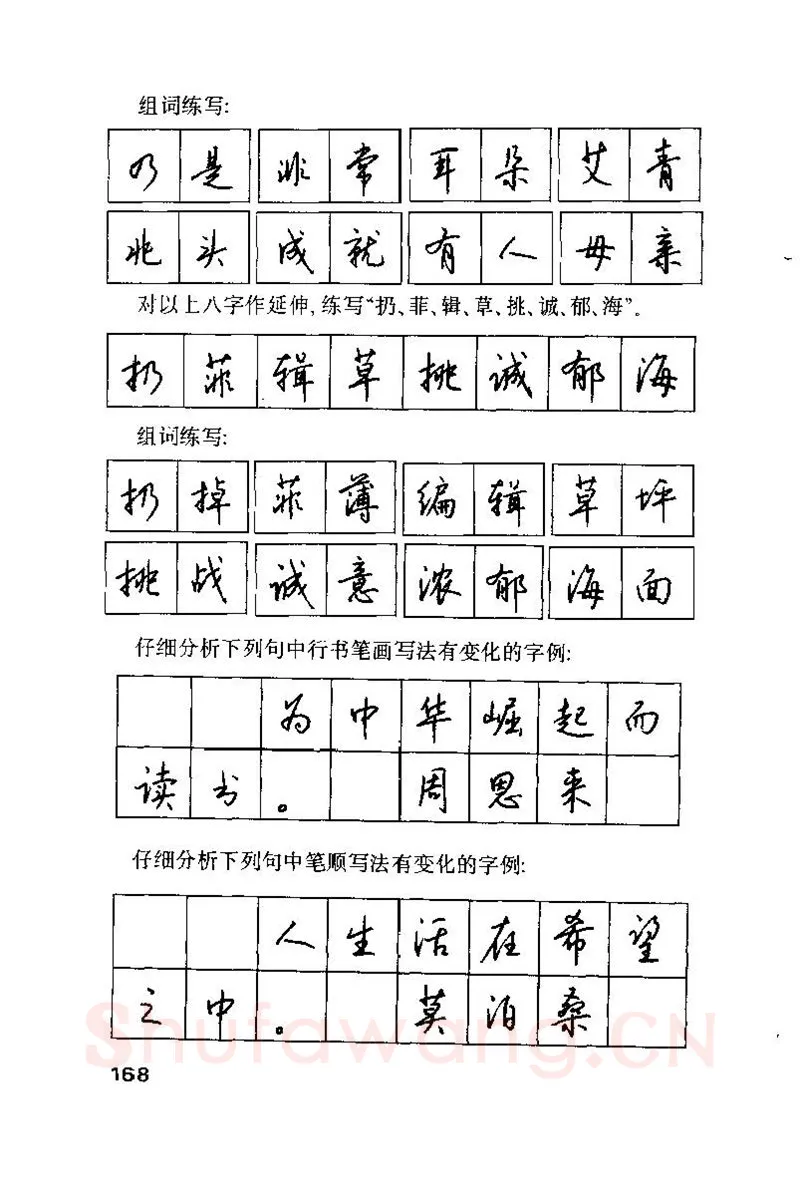 组词练写:
乃是 非常 耳朵 艾青
兆头 成就 有人 母亲
对以上八字作延伸,练写“扔、菲、辑、草、挑、诚、郁、海”。
扔菲辑草挑诚郁海
组词练写:
扔掉 菲薄 编辑 草坪
挑战 诚意 浓郁 海面
仔细分析下列句中行书笔画写法有变化的字例:
为中华崛起而
读书。 周恩来
仔细分析下列句中笔顺写法有变化的字例:
人生活在希望
之中。 莫泊桑
Shufawang.CN
168